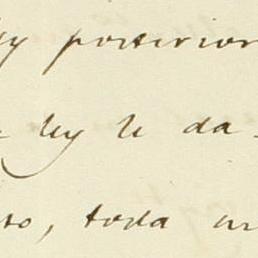 ley posterior
ley le da
to, toda